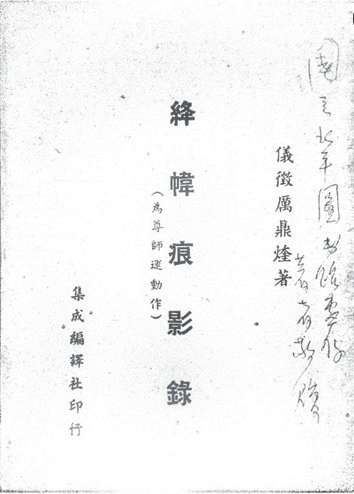 國立北平圖書館惠存
著者敬贈
儀徵厲鼎煃著
絳幃痕影錄
(為尊師運動作)
集成編譯社印行